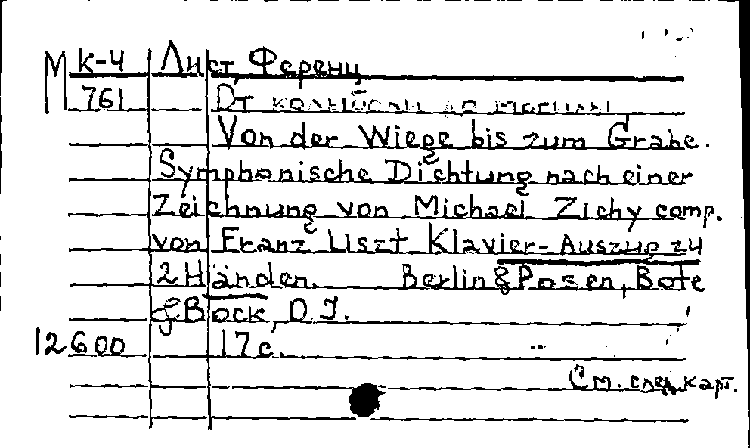 М К-4 Лист, Ференц
761 От колыбели до могилы
Von der Wiege bis zum Grabe.
Symphonische Dichtung nach einer
Zeichnung von Michael Zichy comp.
von Franz Liszt Klavier-Auszug zu
2 Händen. Berlin & Posen, Bote
& Bock, D.J.
12600 17 с.
См. спец. карт.